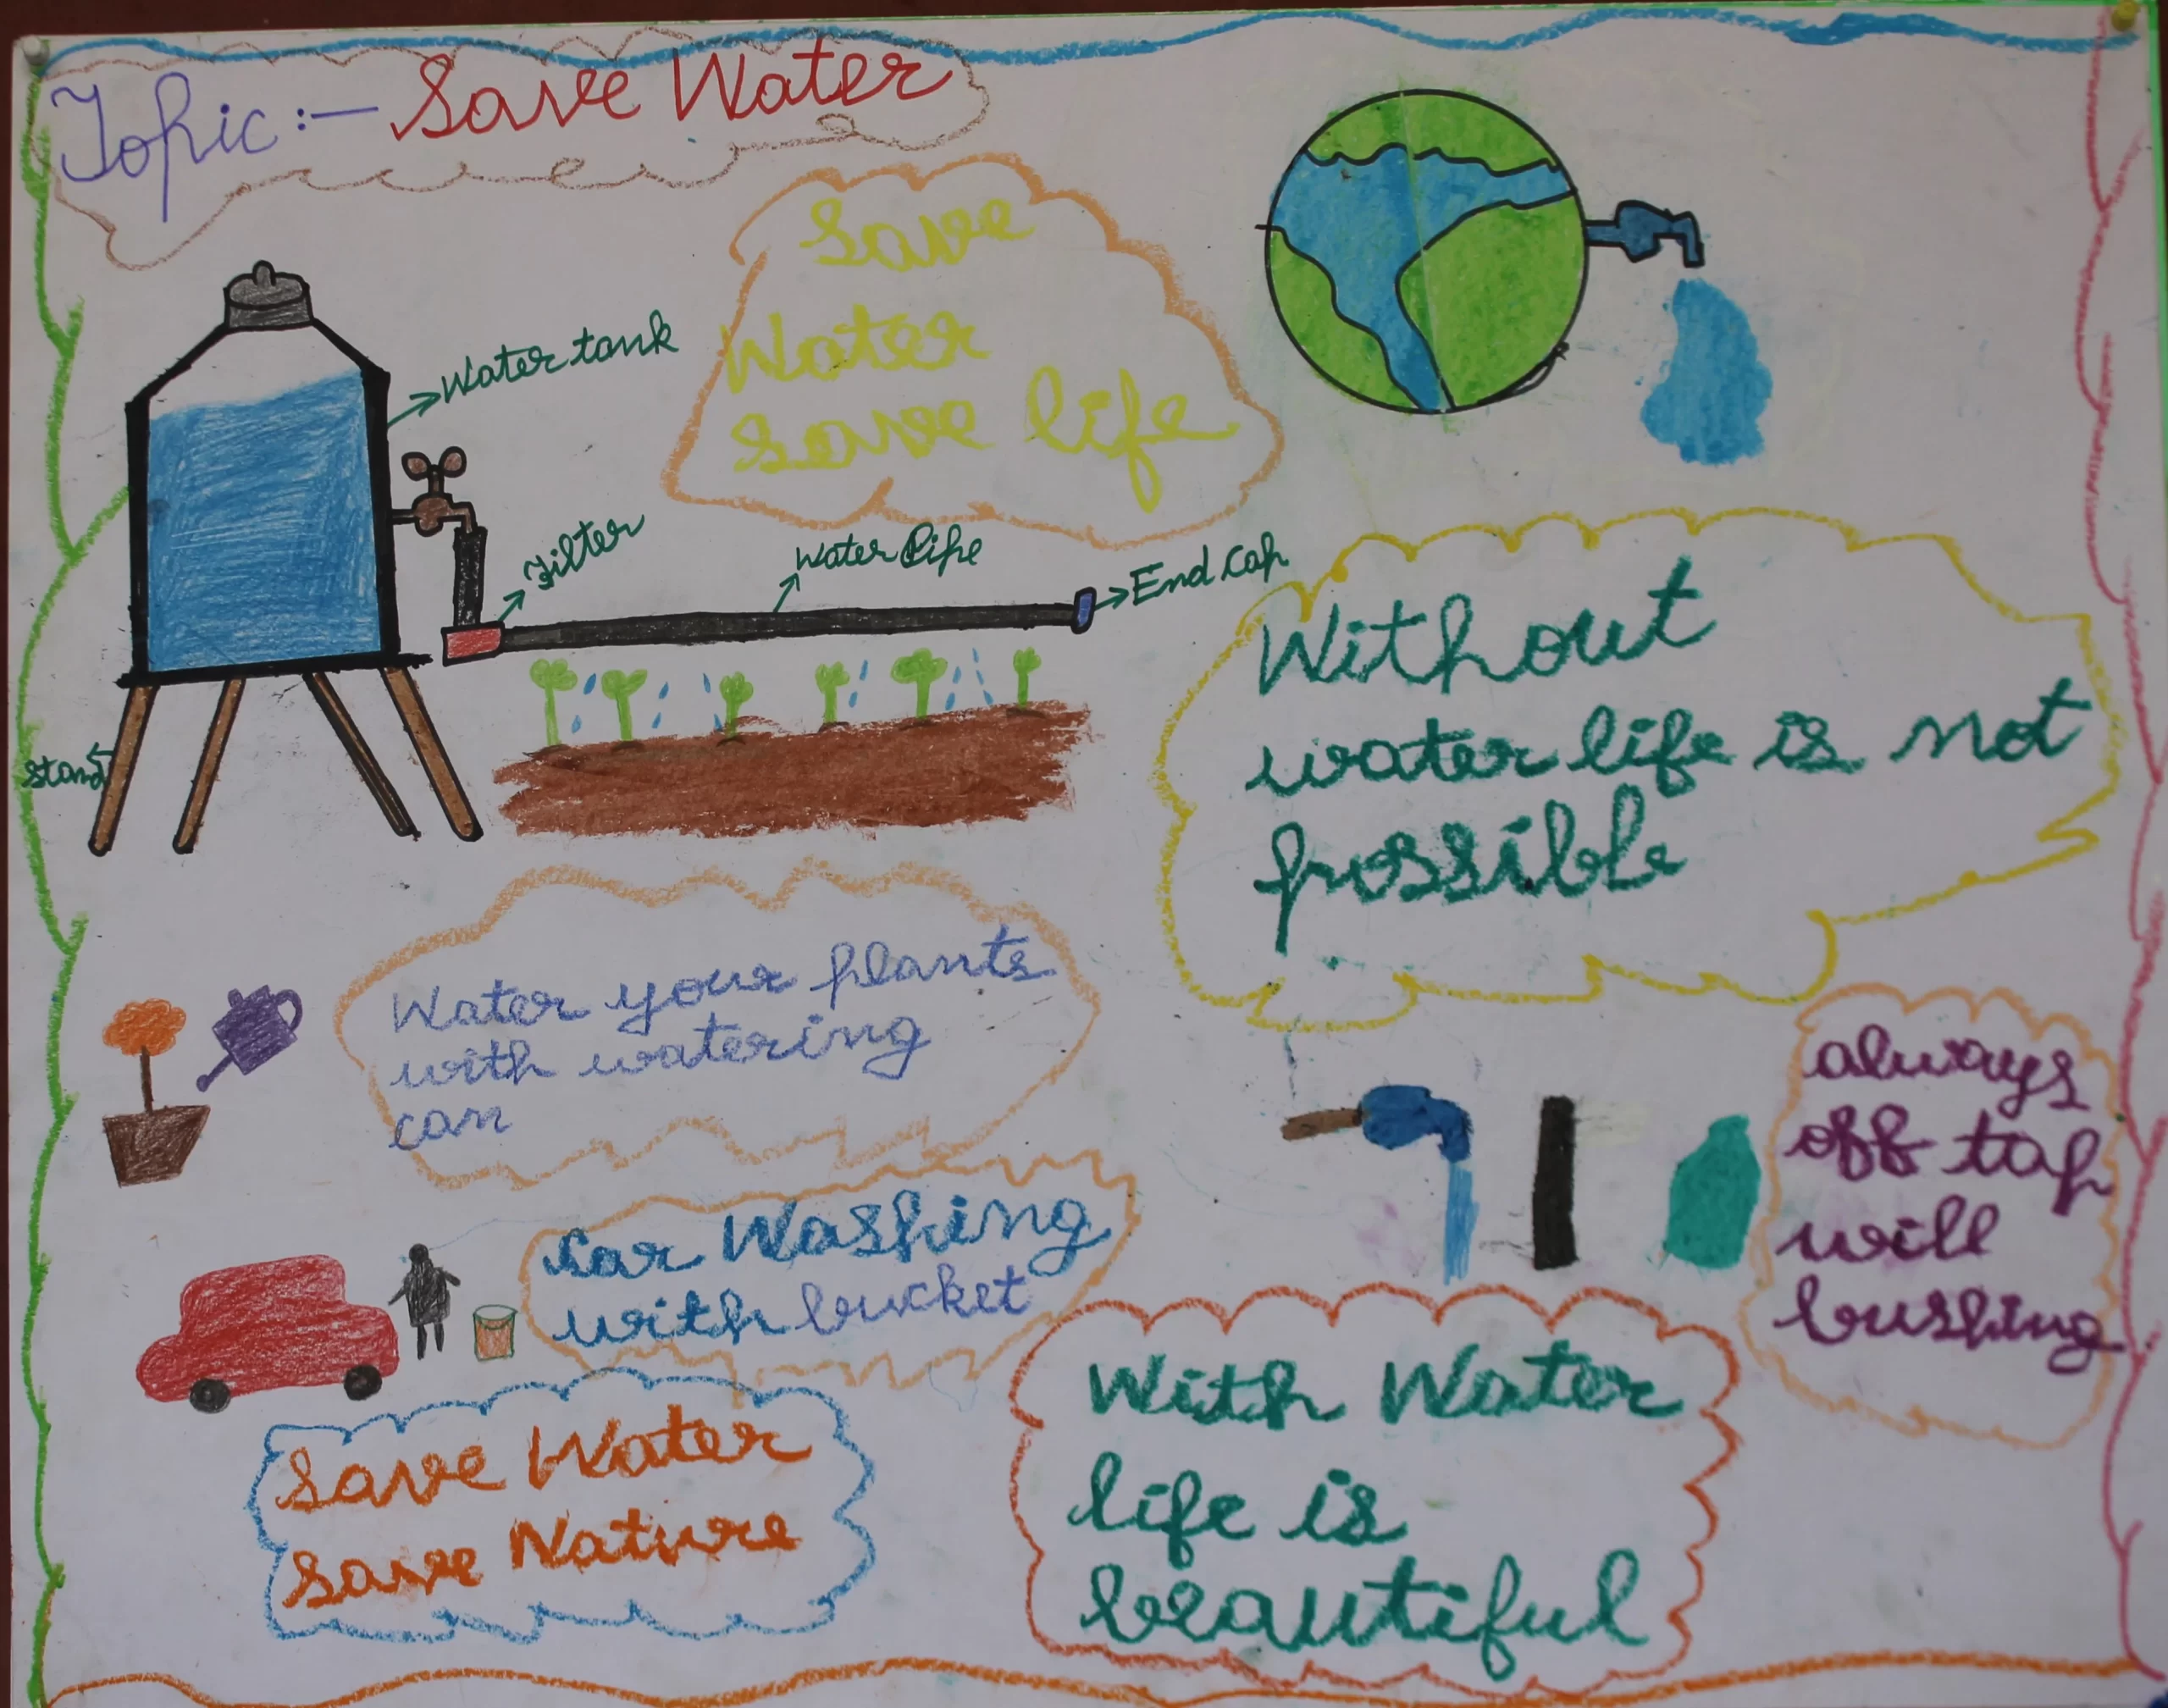 Topic :- Save Water
Save
Water
save life
Water tank
Filter
Water Pipe
End Cap
Stand
Without
water life is not
possible
Water your plants
with watering
can
always
off tap
will
bushing
Car Washing
with bucket
With Water
life is
beautiful
Save Water
Save Nature